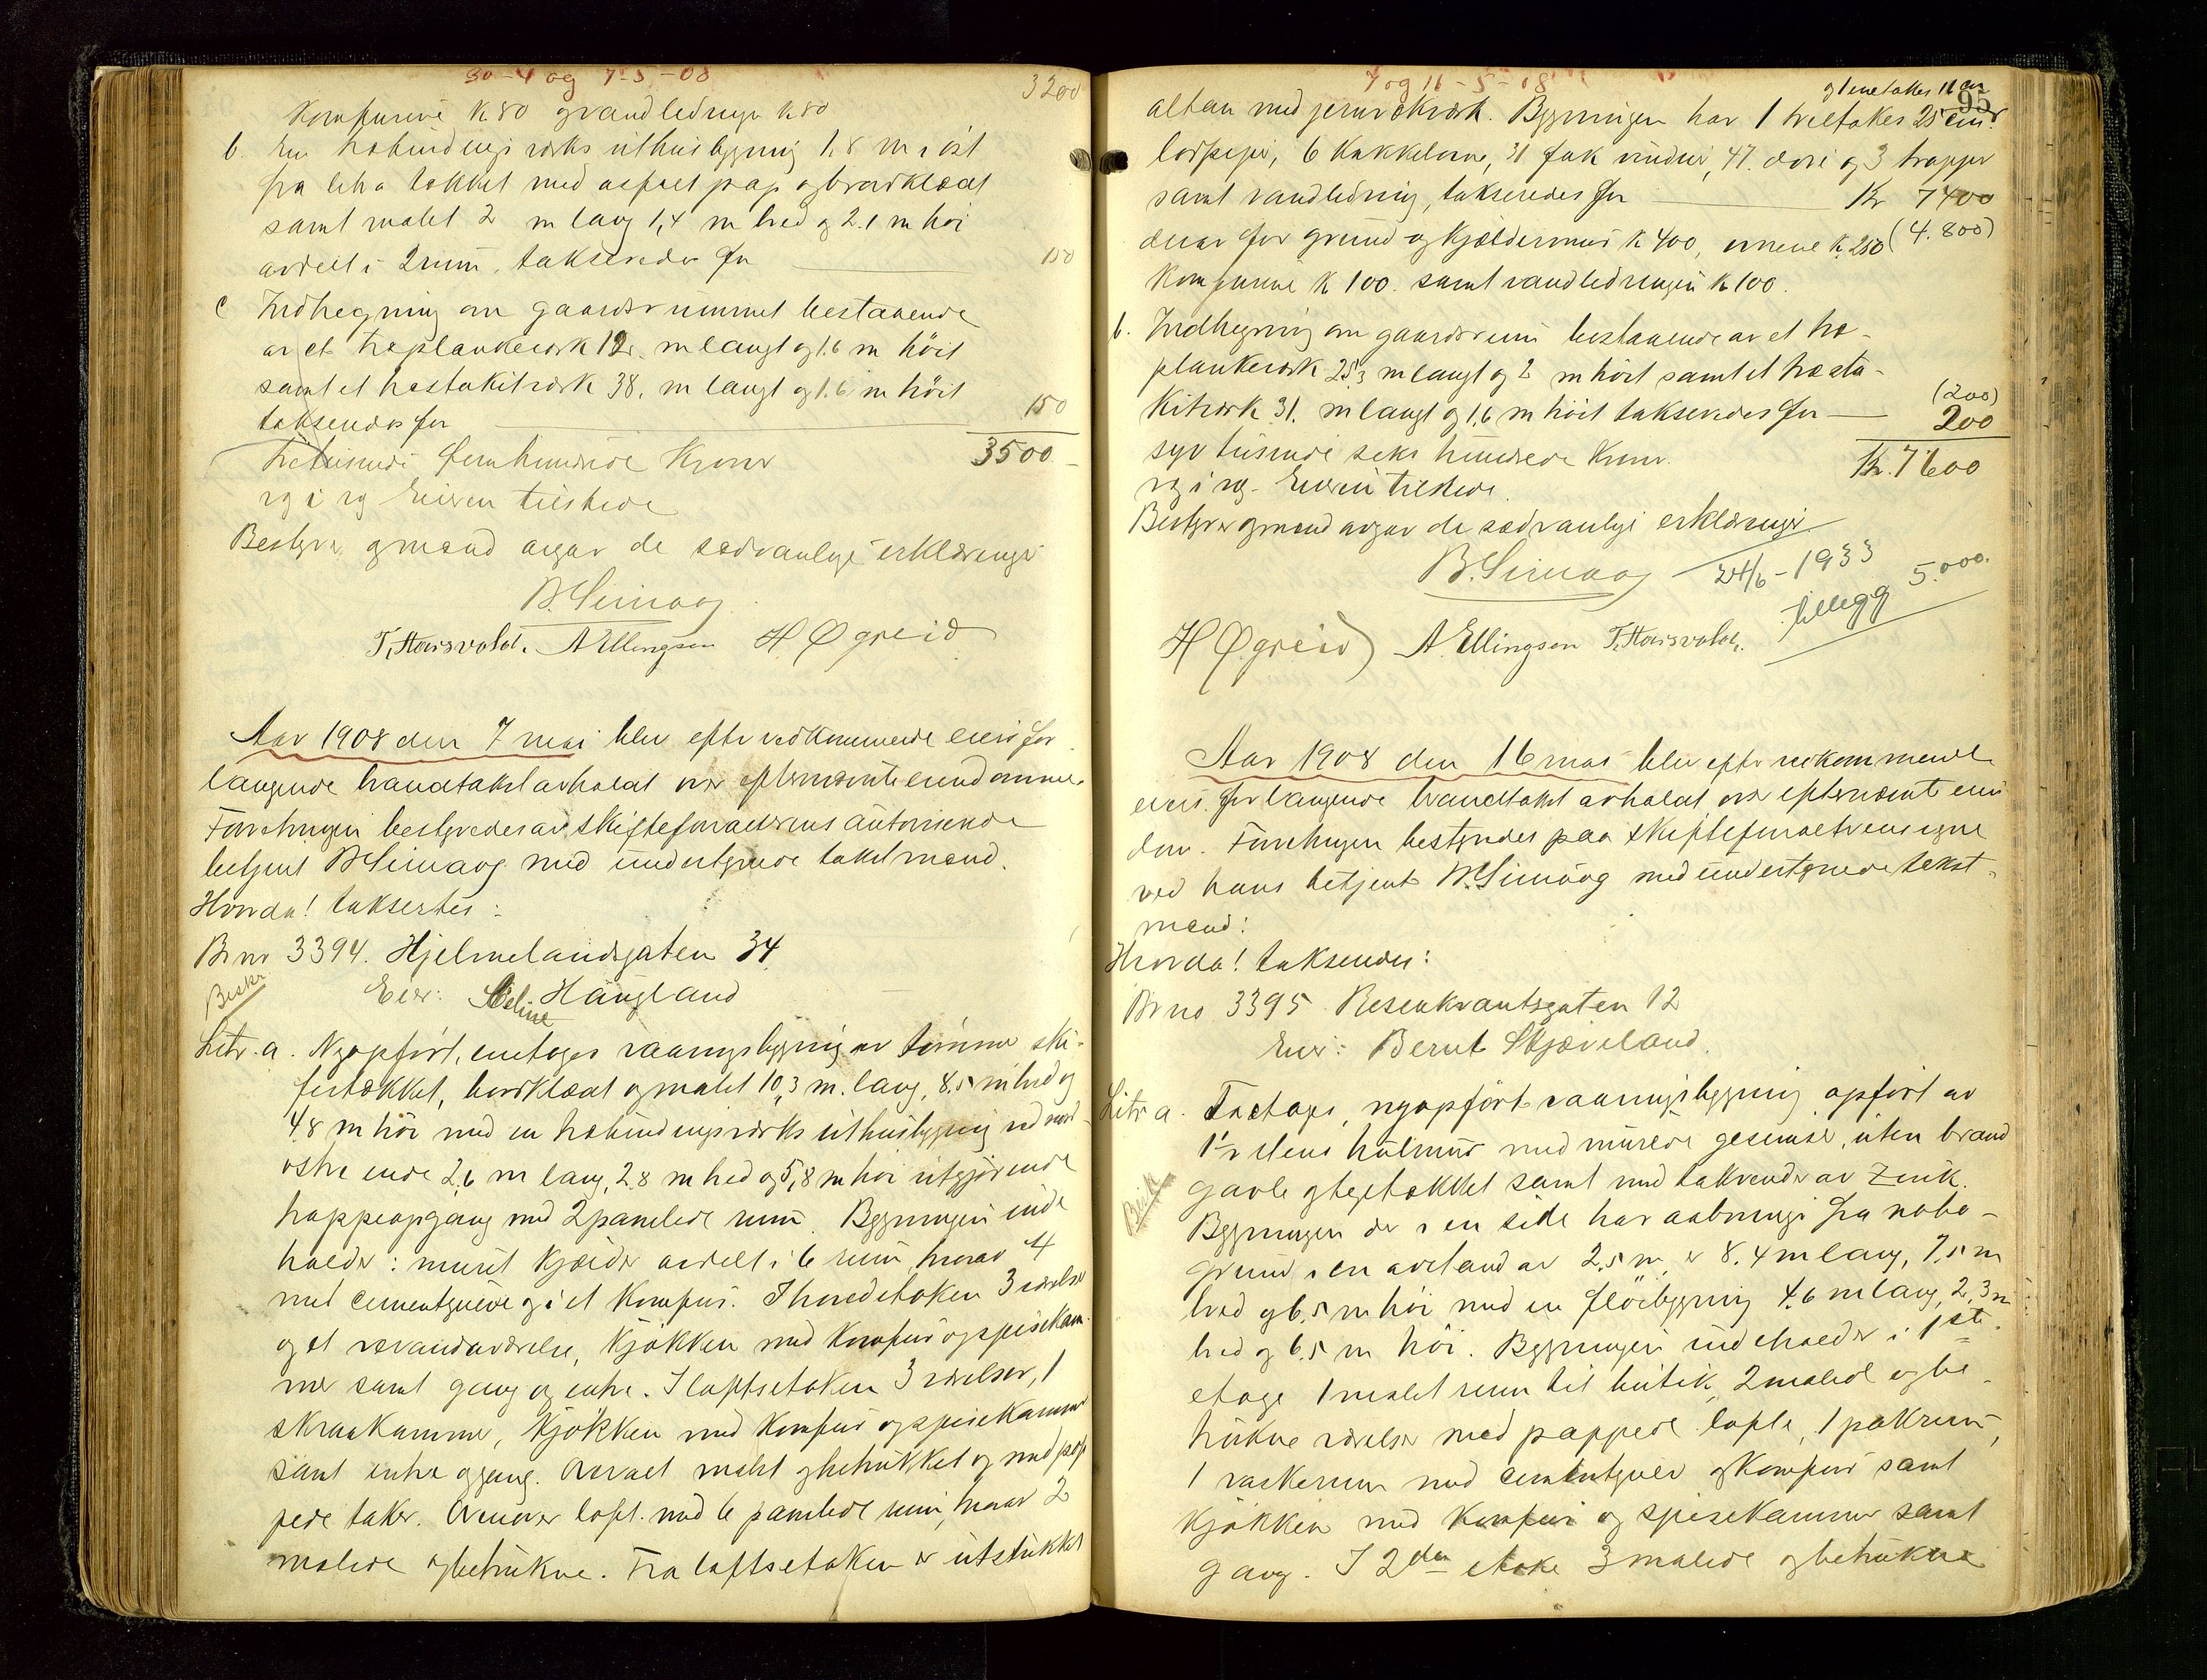 30-4 og 7-5-08
3200
Komfurene k 80 vandledningen k 80
b. En træbindingsværks uthusbygning 1,8 m i øst
fra litra a tækket med asfalt pap og bordklædt
samt malet 2 m lang 1,4 m bred og 2.1 m høi
avdelt i 2 rum, takseredes for 150
c Indhegning om gaardsrummet bestaaende
av et træplankeverk 12, m langt og 1.6 m höit
samt et træstakitværk 38, m langt og 1.6 m höit
takseredes for 150
Tretusinde femhundrede Kroner 3500
og i og Eieren tilstede
Bestyrer og mænd avgav de sædvanlige erklæringer
B. Simaog
T. Hausvold. A Ellingsen H Øgreid
Aar 1908 den 7 mai blev efter vedkommende eiers for
langende brandtakst avholdt over efternævnte eiendomme.
Forretningen bestyredes av skifteforvalterens autoriserede
betjent B Simaog med undertegnede takstmænd.
Hvorda! taksertes:
Br no 3394. Hjelmelandsgaten 34
Beskr
Eier: Seline Haugland
Litr. a. Nyopført, enetages vaaningsbygning av tømmer ski-
fertækket, bordklædt og malet 10,3 m. lang, 8.5 m bred og
4,8 m høi med en træbindingsværks uthusbygning ved nord-
østre ende 2,6 m lang, 2.8 m bred og 5,8 m høi utgjørende
trappeopgang med 2 panelede rum. Bygningen inde
holder: muret kjælder avdelt i 6 rum, hvorav 4
med cementgulve og i et Komfur. I hovedetaken 3 værelser
og et verandaværelse, Kjøkken med Komfur og spisekam-
mer samt gang og entre. I loftsetaken 3 værelser, 1
skraakammer, Kjøkken med Komfur og spisekammer
samt entre og gang. Overalt malet og betrukket og med pap
pede taker. Ovenover loft med 6 panelede rum, hvorav 2
malede og betrukne. Fra loftsetaken er utstukket
7 og 16-5-08
og 1 enetakes 11 cm
95
altan med jernrekværk. Bygningen har 1 treetakes 25 cm's
lodpipe, 6 Kakkelovne, 31 fak vinduer, 47 dører og 3 trapper
samt vandledning, takseredes for Kr 7400
derav for grund og Kjældermur k 400, ovnene k 250 (4.800)
Komfurene k 100. samt vandledningen k 100.
b. Indhegning om gaardsrum bestaaende av et træ-
plankeverk 25,3 m langt og 2 m høit samt et træsta-
Kitværk 31. m langt og 1,6 m høit takseredes for (200)
200
syv tusinde seks hundrede Kroner. Kr. 7600
og i og. Eieren tilstede.
Bestyrer og mænd avgav de sædvanlige erklæringer
B. Simaog 24/6-1933
tillegg 5.000.
H Øgreid A. Ellingsen T. Hausvold.
Aar 1908 den 16 mai blev efter vedkommende
eiers forlangende brandtakst avholdt over efternævnte eien
dom. Forretningen bestyredes paa skifteforvalterens vegne
ved hans betjent B. Simaog med undertegnede takst-
mænd:
Hvorda! takseredes:
Br no 3395 Rosenkrantsgaten 12
Eier: Bernt Skjæveland.
Litr a. Toetages, nyopført vaaningsbygning opført av
Beskr
1 1/2 stens hulmur med murede gesimser, uten brand
gavle og tegltækket samt med takrender av Zink.
Bygningen der i en side har aabninger fra nabo-
grund i en avstand av 2,5 m er 8.4 m lang, 7,5 m
bred og 6,5 m høi med en fløibygning 4,6 m lang, 2,3 m
bred og 6.5 m høi. Bygningen indeholder i 1ste
etage 1 malet rum til butik, 2 malede og be-
trukne værelser med pappede lofte, 1 pakrum,
1 vaskerum med cementgulv og Komfur samt
Kjøkken med Komfur og spisekammer samt
gang. I 2den etake 3 malede og betrukne